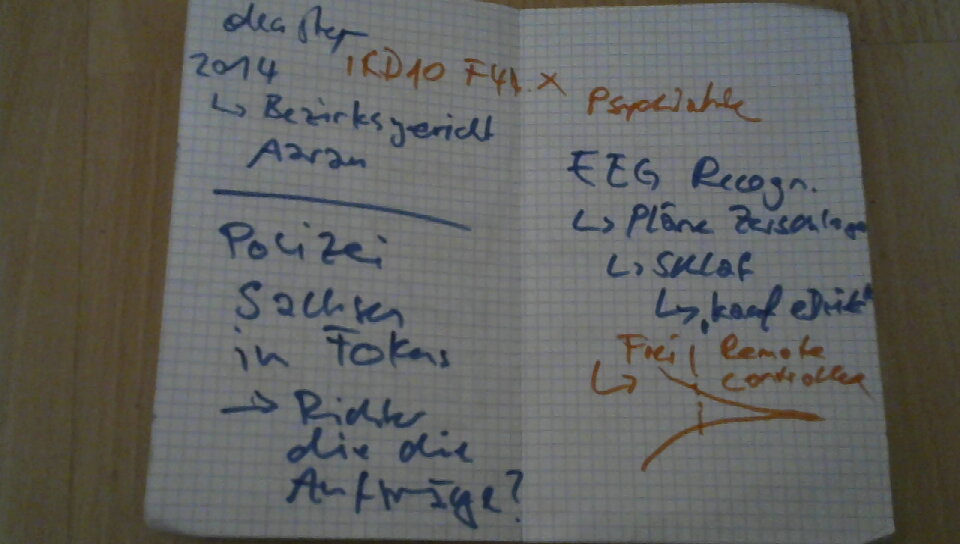 2014 IRD10 F41.X
↳ Bezirksgericht
Aarau
Polizei
Sachsen
in Fokus
→ Richter
die die
Aufträge?
Psychiatrie
EEG Recogn.
↳ Pläne Zerschlagen
↳ Sklaf
↳ kauf
Frei | Remote
↳ controlled